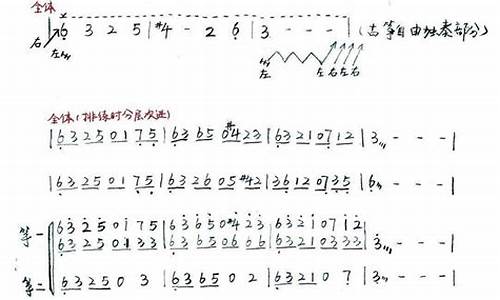 全体
右 左 6 3 2 5 | #4 - 2 6 | 3 - - - | (古筝自由独奏部分)
左 左右左右
全体(排练时分层次进)
| 6 3 2 5 0 1 7 5 | 6 3 6 5 0 #4 2 3 | 6 3 2 1 0 7 1 2 | 3 - - - |
| 6 3 2 5 0 1 7 5 | 6 3 2 6 0 5 #4 2 | 3 6 1 2 0 7 3 5 | 6 - - - |
筝一 | 6 3 2 5 0 1 7 5 | 6 3 6 5 0 #4 2 3 | 6 3 2 1 0 7 1 2 |
6 3 2 5 0 1 3 3 | 6 3 6 5 0 6 6 6 | 6 3 2 1 0 3 3 3 | 3 - - - |
筝二 | 6 3 2 5 0 3 | 6 3 6 5 0 2 | 6 3 2 1 0 7 | 3 - - - |